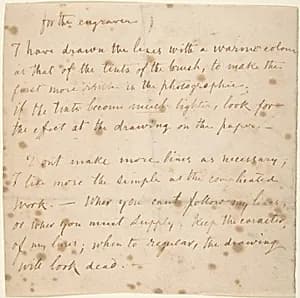 for the engraver
I have drawn the lines with a warone colour
as that of the tents of the brush, to make the
first more visible in the photographie.
if the tents become much lighter, look for
the effect at the drawing on the paper. —
Dont make more lines as necessary,
I like more the simple as the complicated
work. — Wher you cant follow my lines,
or wher you must supply, Keep the caracter
of my lines; when to regular, the drawing
will look dead. —